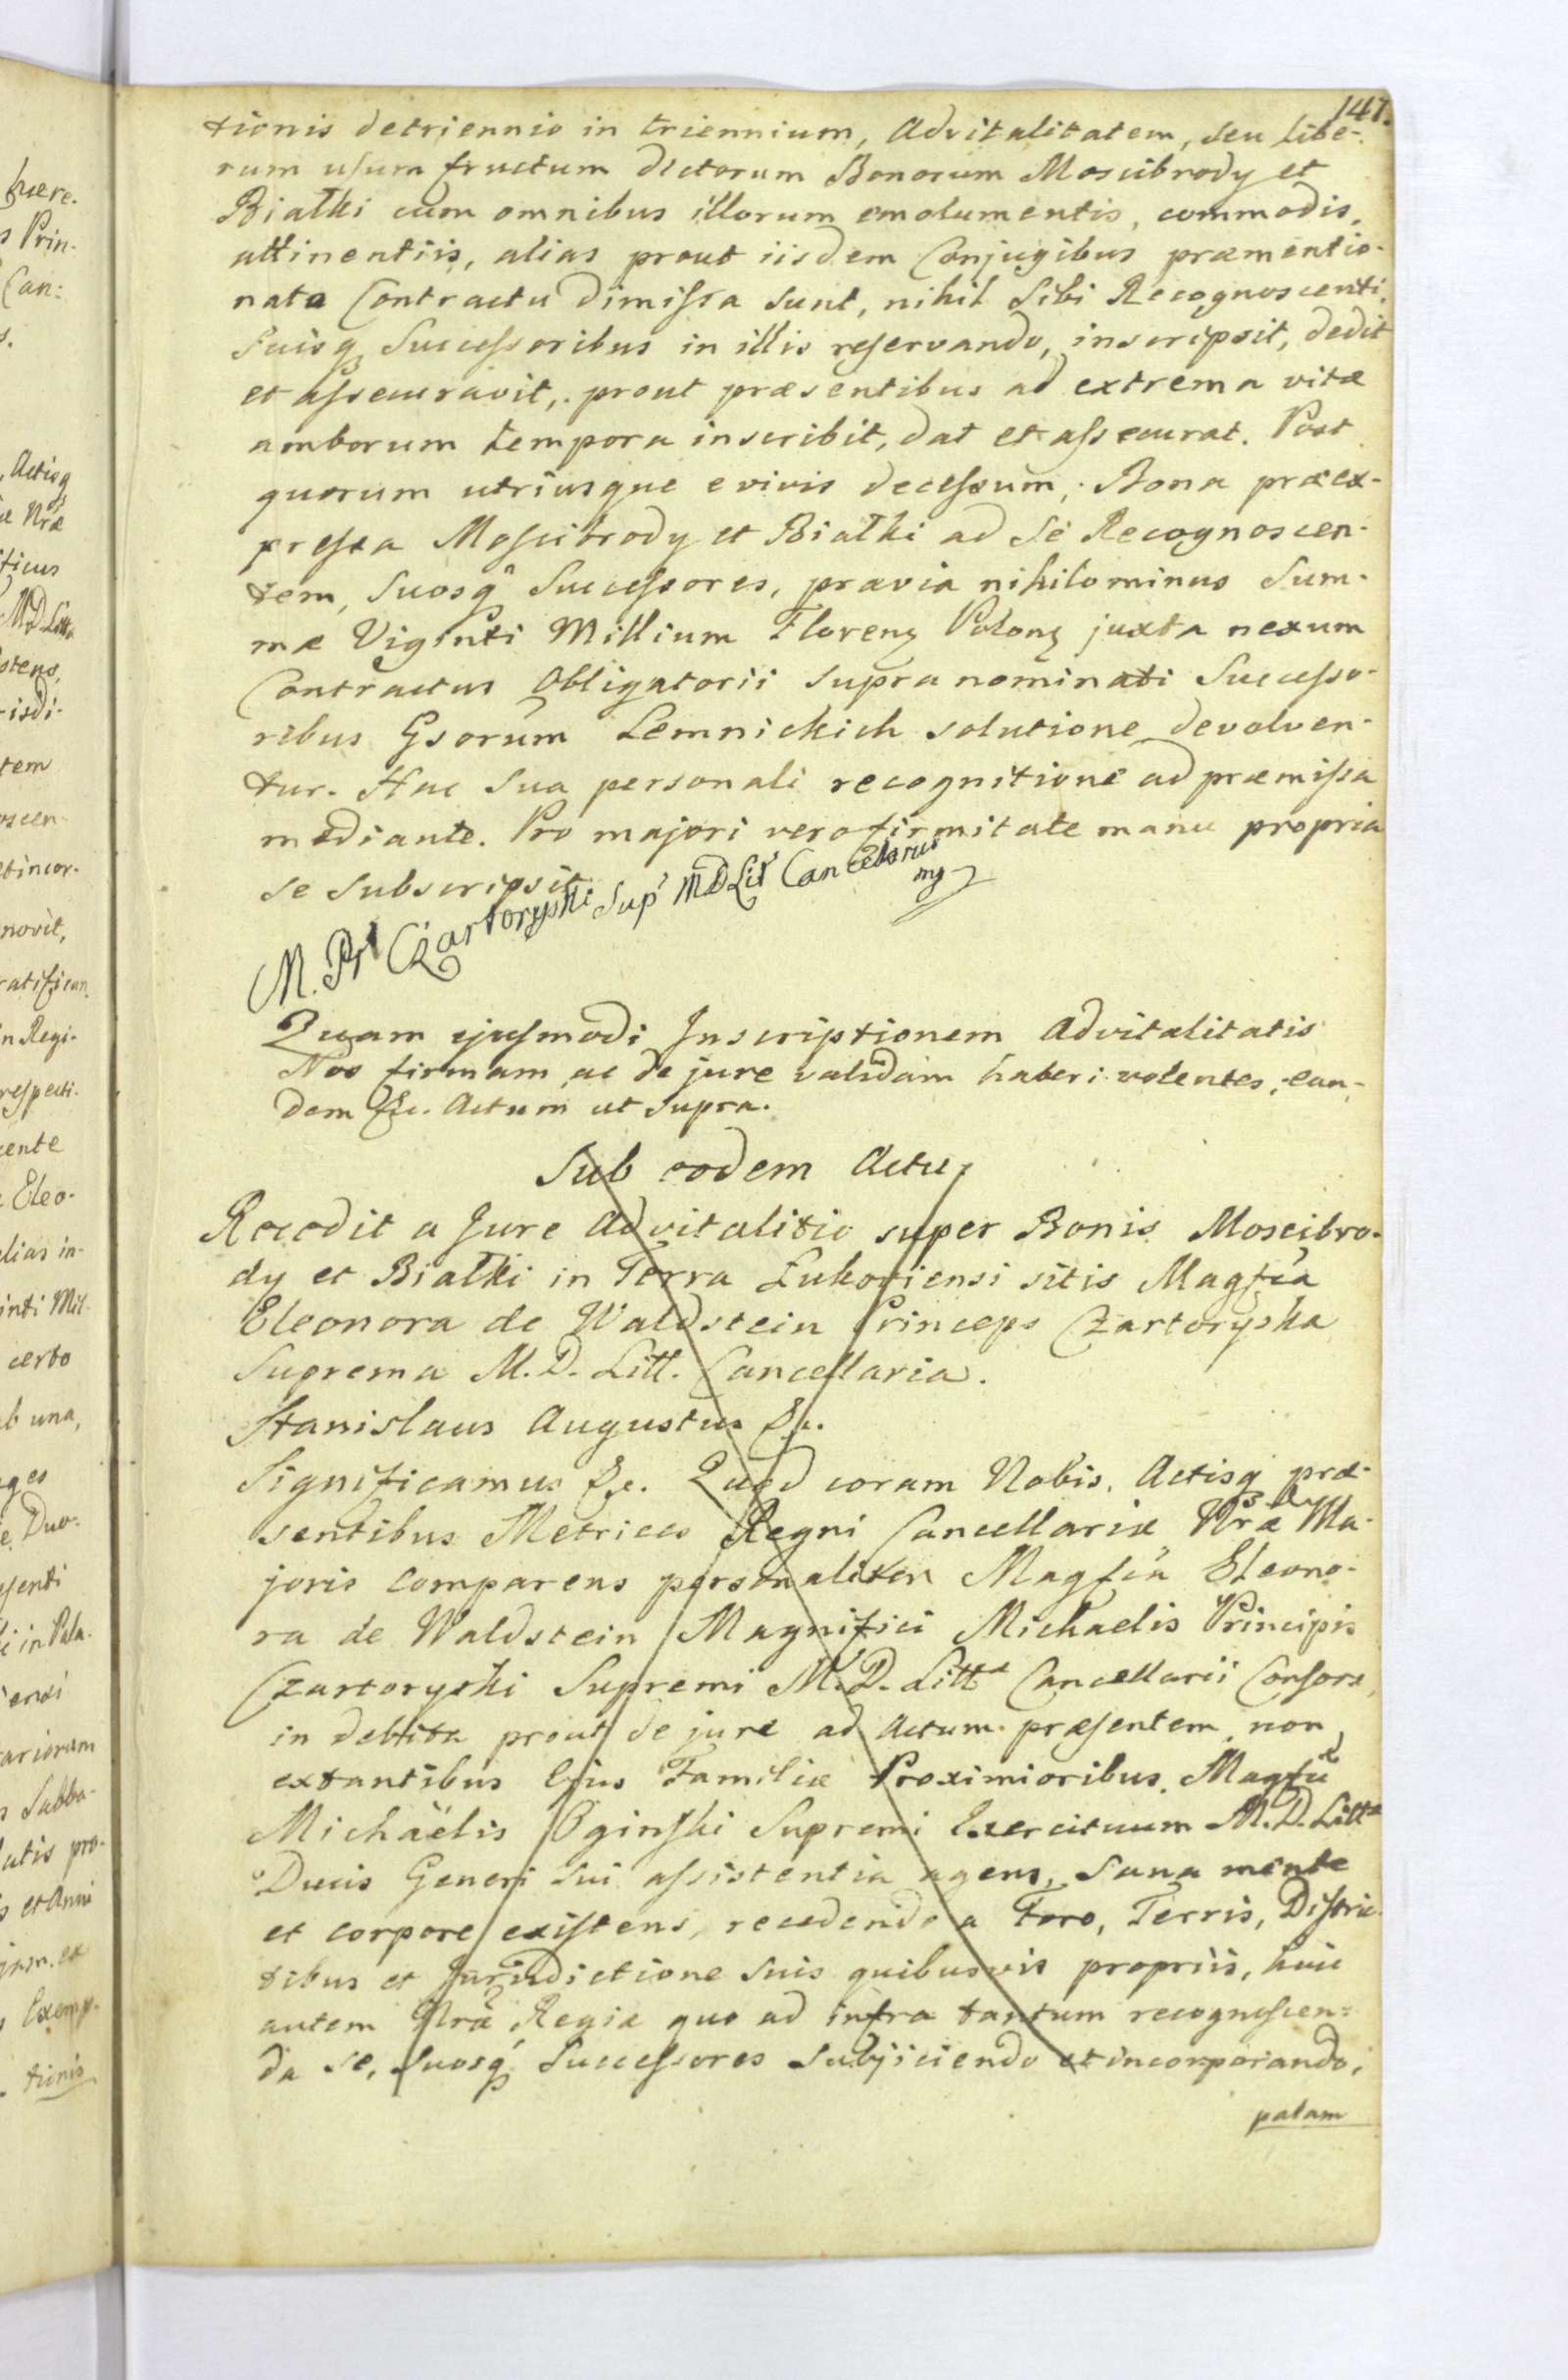 147.
tionis detriennio in triennium, Advitalitatem, seu libe-
rum usum fructum dictorum Bonorum Moscibrody et
Białki cum omnibus illorum emolumentis, commodis,
attinentiis, alias prout iisdem Conjugibus præmentio-
nata Contractu dimiſsa sunt, nihil Sibi Recognoscenti,
Suisq Succeſsoribus in illis reſervando, inscripsit, dedit
et aſsecuravit, prout præsentibus ad extrema vitæ
amborum tempora inscribit, dat et aſsecurat. Post
quorum utriusque e vivis deceſsum, Bona præex-
preſsa Moſcibrody et Białki ad Se Recognoscen-
tem, Suosq Succeſsores, prævia nihilominus Sum-
mæ Viginti Millium Floren Polon juxta nexum
Contractus Obligatorii supra nominati Succeſso-
ribus Gsorum Lemnickich solutione devolven-
tur. Hac Sua personali recognitione ad præmiſsa
mediante. Pro majori vero firmitate manu propria
se subscripsit.
M. Px Czartoryski Sup M D Lit Cancellarius
mp
Quam ejuſmodi Inscriptionem Advitalitatis
Nos firmam ac de jure validam haberi volentes, ean-
dem &c. Actum ut supra.
Sub eodem Actu
Recedit a Jure Advitalitio super Bonis Moscibro-
dy et Białki in Terra Łukoviensi sitis Magfca
Eleonora de Waldstein Princeps Czartoryska
Suprema M. D. Litt. Cancellaria.
Stanislaus Augustus &c.
Significamus &c. Quod coram Nobis, Actisq præ-
sentibus Metrices Regni Cancellariæ Nræ Ma-
joris Comparens personaliter Magfca Eleono-
ra de Waldstein Magnifici Michaelis Principis
Czartoryski Supremi M. D. Littæ Cancellarii Consors,
in debita prout de jure ad Actum præſentem, non
extantibus Ejus Familiæ Proximioribus, Magfci
Michaëlis Oginſki Supremi Exercituum M. D. Littæ
Ducis Generi sui aſsistentia agens, Sana mente
et corpore exiſtens, recedendo a Foro, Terris, Diſtric-
tibus et Jurisdictione suis quibusvis propriis, huic
autem Nræ Regiæ quo ad infra tantum recognoſcen-
da se, suosq Succeſsores Subjiciendo et incorporando,
palam